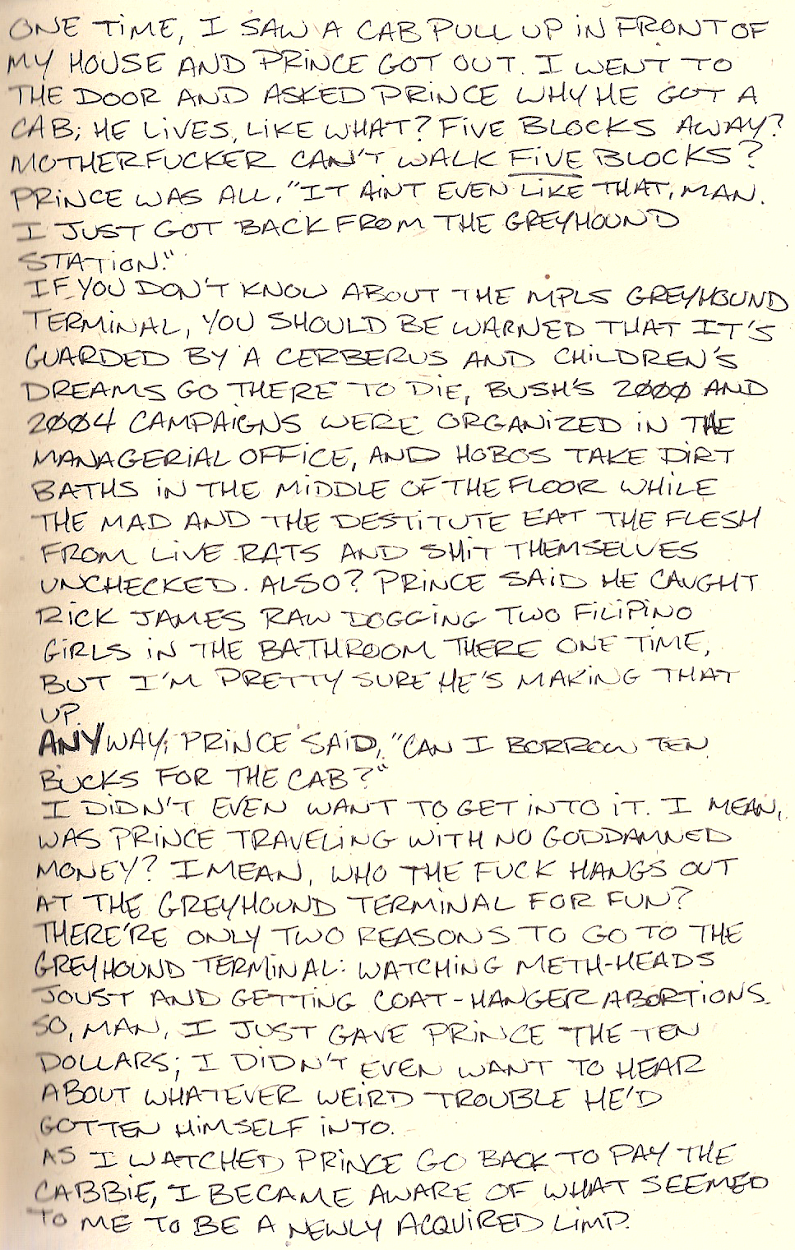 ONE TIME, I SAW A CAB PULL UP IN FRONT OF
MY HOUSE AND PRINCE GOT OUT. I WENT TO
THE DOOR AND ASKED PRINCE WHY HE GOT A
CAB; HE LIVES, LIKE WHAT? FIVE BLOCKS AWAY?
MOTHERFUCKER CAN'T WALK FIVE BLOCKS?
PRINCE WAS ALL, "IT AINT EVEN LIKE THAT, MAN.
I JUST GOT BACK FROM THE GREYHOUND
STATION."
IF YOU DON'T KNOW ABOUT THE MPLS GREYHOUND
TERMINAL, YOU SHOULD BE WARNED THAT IT'S
GUARDED BY A CERBERUS AND CHILDREN'S
DREAMS GO THERE TO DIE, BUSH'S 2000 AND
2004 CAMPAIGNS WERE ORGANIZED IN THE
MANAGERIAL OFFICE, AND HOBOS TAKE DIRT
BATHS IN THE MIDDLE OF THE FLOOR WHILE
THE MAD AND THE DESTITUTE EAT THE FLESH
FROM LIVE RATS AND SHIT THEMSELVES
UNCHECKED. ALSO? PRINCE SAID HE CAUGHT
RICK JAMES RAW DOGGING TWO FILIPINO
GIRLS IN THE BATHROOM THERE ONE TIME,
BUT I'M PRETTY SURE HE'S MAKING THAT
UP.
ANYWAY; PRINCE SAID, "CAN I BORROW TEN
BUCKS FOR THE CAB?"
I DIDN'T EVEN WANT TO GET INTO IT. I MEAN,
WAS PRINCE TRAVELING WITH NO GODDAMNED
MONEY? I MEAN, WHO THE FUCK HANGS OUT
AT THE GREYHOUND TERMINAL FOR FUN?
THERE'RE ONLY TWO REASONS TO GO TO THE
GREYHOUND TERMINAL: WATCHING METH-HEADS
JOUST AND GETTING COAT-HANGER ABORTIONS.
SO, MAN, I JUST GAVE PRINCE THE TEN
DOLLARS; I DIDN'T EVEN WANT TO HEAR
ABOUT WHATEVER WEIRD TROUBLE HE'D
GOTTEN HIMSELF INTO.
AS I WATCHED PRINCE GO BACK TO PAY THE
CABBIE, I BECAME AWARE OF WHAT SEEMED
TO ME TO BE A NEWLY ACQUIRED LIMP.